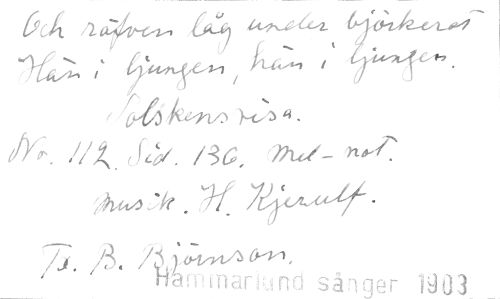 Och räfven låg under björkerot
Hän i ljungen, hän i ljungen.
Solskensvisa.
No. 112. Sid. 136. Mel-not.
Musik. H. Kjerulf.
Tx. B. Björnson.
Hammarlund sånger 1903